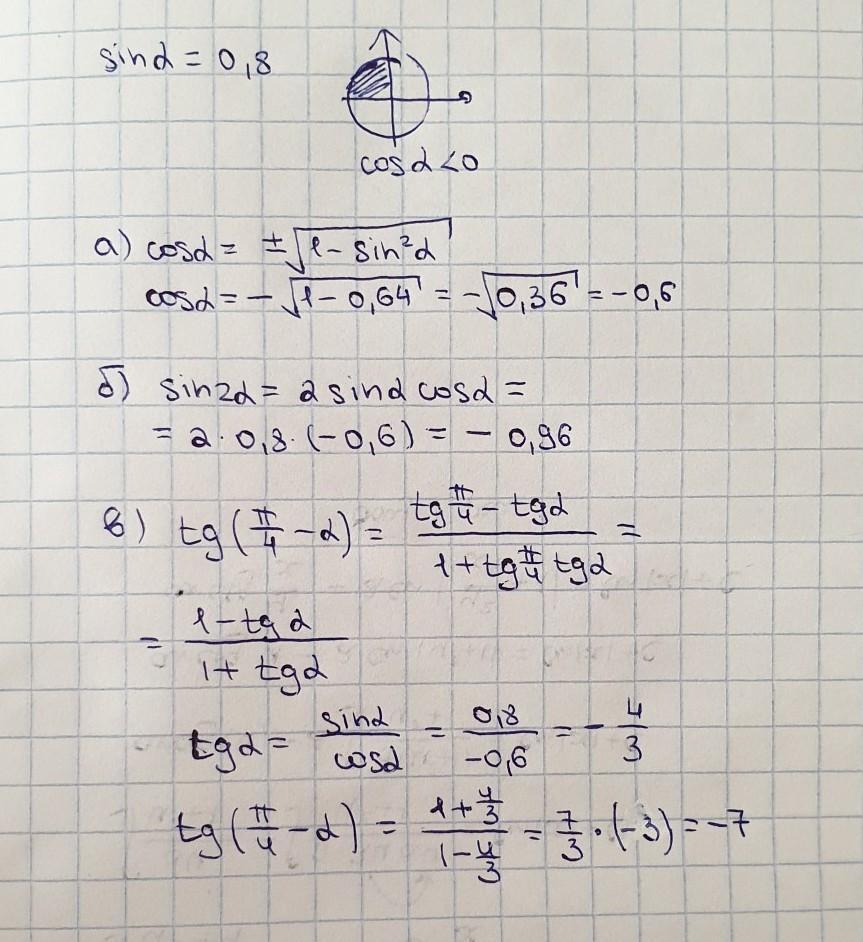 sinα = 0,8
cosα<0
а) cosα = ±√(1 - sin²α)
cosα = - √(1 - 0,64) = -√(0,36) = -0,6
б) sin2α = 2 sinα cosα =
= 2 · 0,8 · (-0,6) = - 0,96
в) tg(π/4 - α) = (tg π/4 - tgα)/(1 + tg π/4 tgα) =
= (1 - tgα)/(1 + tgα)
tgα = sinα/cosα = 0,8/-0,6 = - 4/3
tg(π/4 - α) = (1 + 4/3)/(1 - 4/3) = 7/3 · (-3) = -7